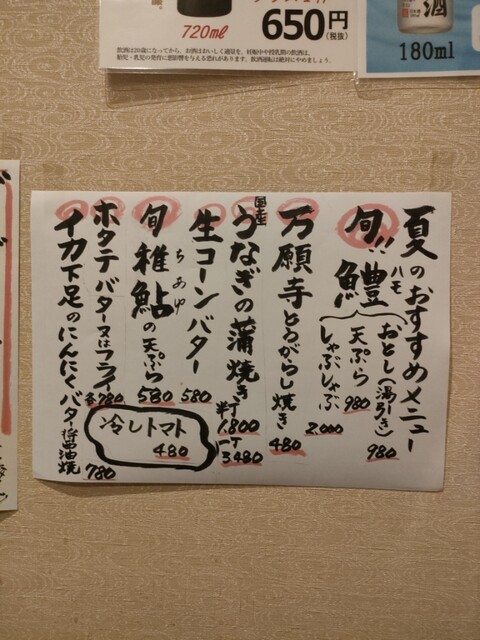 720ml
650円
(税抜)
飲酒は20歳になってから。お酒はおいしく適量を。妊娠中や授乳期の飲酒は、
胎児・乳児の発育に悪影響を与える恐れがあります。飲酒運転は絶対にやめましょう。
酒
180ml
夏のおすすめメニュー
旬!! 鱧
ハモ
おとし(湯引き) 980
天ぷら 980
しゃぶしゃぶ 2.000
万願寺とうがらし焼き 480
国産
うなぎの蒲焼き 半丁 1.800
一丁 3.480
生コーンバター 580
旬 稚鮎の天ぷら 580
ちあゆ
ホタテバター又はフライ 各780
イカ下足のにんにくバター醤油焼 780
冷しトマト
480